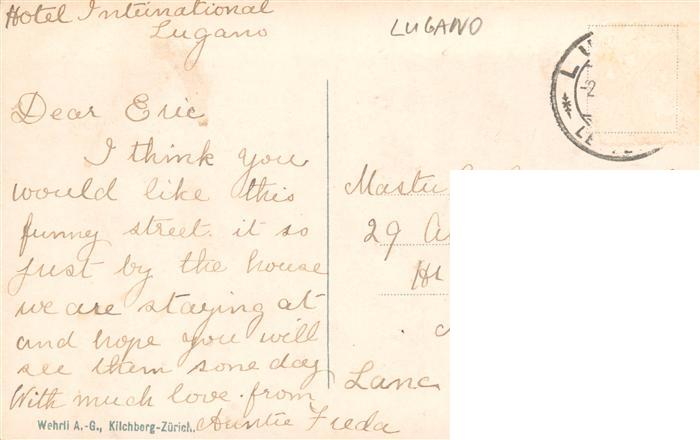 Hotel International
Lugano
LUGANO
Dear Eric
I think you
would like this
funny street. it so
just by the house
we are staying at
and hope you will
see them some day
With much love. from
Auntie Freda
Wehrli A.-G., Kilchberg-Zürich.
Master
29
Lanc